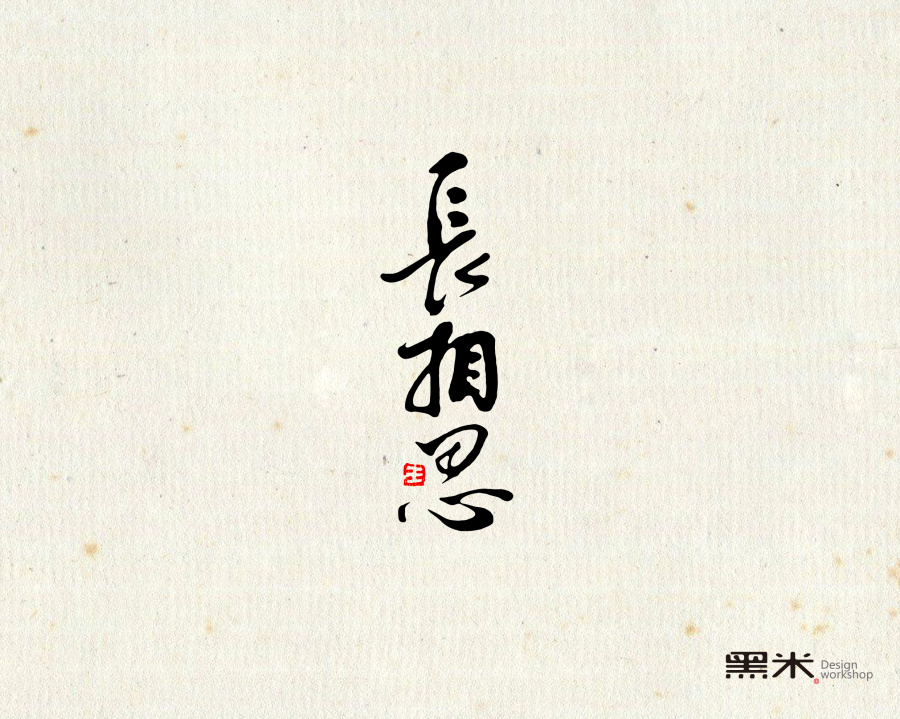 長相思
黑米
Design
workshop